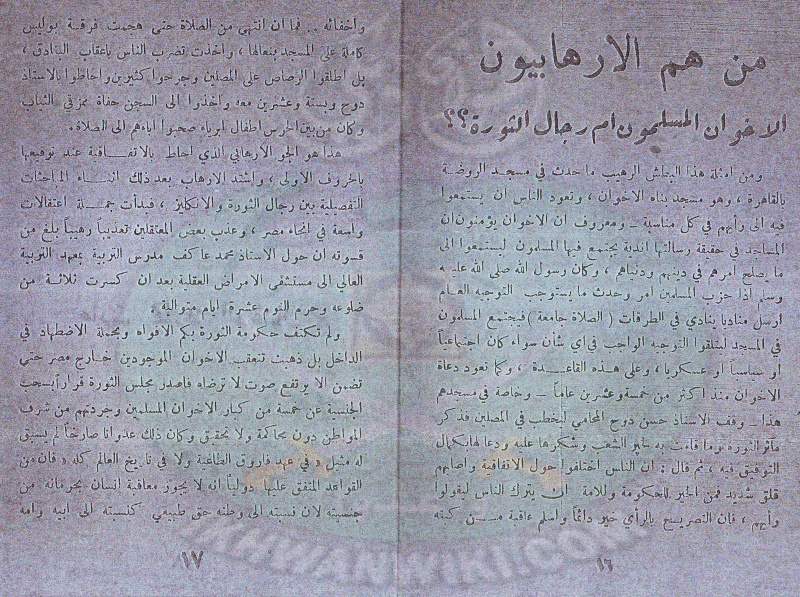 من هم الارهابيون
الاخوان المسلمون ام رجال الثورة؟؟
ومن امثلة هذا البطش الرهيب ما حدث في مسجد الروضة
بالقاهرة ، وهو مسجد بناه الاخوان ، وتعود الناس ان يستمعوا
فيه الى رأيهم في كل مناسبة – ومعروف ان الاخوان يؤمنون ان
المساجد في حقيقة رسالتها اندية يجتمع فيها المسلمون ليستمعوا الى
ما يصلح امرهم في دينهم ودنياهم ، وكان رسول الله صلى الله عليه
وسلم اذا حزب المسلمين امر وحدث ما يستوجب التوجيه العام
ارسل مناديا ينادي في الطرقات ( الصلاة جامعة ) فيجتمع المسلمون
في المسجد ليتلقوا التوجيه الواجب في اي شأن سواء كان اجتماعياً
او سياسياً او عسكريا ، وعلى هذه القاعدة ، وكما تعود دعاة
الاخوان منذ اكثر من خمسة وعشرين عاماً – وخاصة في مسجدهم
هذا – وقف الاستاذ حسن دوح المحامي ليخطب في المصلين فذكر
مآثر الثورة وما قامت به لخير الشعب وشكرها عليه ودعا لها بكمال
التوفيق فيه ، ثم قال : ان الناس اختلفوا حول الاتفاقية واصابهم
قلق شديد فمن الخير للحكومة وللامة ان يترك الناس ليقولوا
رأيهم ، فان التصريح بالرأي خير دائماً واسلم عاقبة من كبته
١٦
واخفائه .. فما ان انتهى من الصلاة حتى هجمت فرقة بوليس
كاملة على المسجد بنعالها ، واخذت تضرب الناس باعقاب البنادق ،
بل اطلقوا الرصاص على المصلين وجرحوا كثيرين واحاطوا بالاستاذ
دوح وبستة وعشرين معه واخذوا الى السجن حفاة ممزقي الثياب
وكان من بين اطفال ابرياء صحبوا اباءهم الى الصلاة.
هذا هو الجو الارهابي الذي احاط بالاتفاقية عند توقيعها
بالحروف الاولى ، واشتد الارهاب بعد ذلك اثناء المباحثات
التفصيلية بين رجال الثورة والانكليز ، فبدأت حملة اعتقالات
واسعة في أنحاء مصر ، وعذب بعض المعتقلين تعذيباً رهيباً بلغ من
قسوته ان حول الاستاذ محمد عاكف مدرس التربية بمعهد التربية
العالي الى مستشفى الامراض العقلية بعد ان كسرت ثلاثة من
ضلوعه وحرم النوم عشرة ايام متوالية .
ولم تكتف حكومة الثورة بكم الافواه وبحملة الاضطهاد في
الداخل بل ذهبت تتعقب الاخوان الموجودين خارج مصر حتى
تضمن الا يرتفع صوت لا ترضاه فاصدر مجلس الثورة قراراً بسحب
الجنسية عن خمسة من كبار الاخوان المسلمين وجردتهم من شرف
المواطن دون محاكمة ولا تحقيق وكان ذلك عدوانا صارخاً لم يسبق
له مثيل « في عهد فاروق الطاغية ولا في تاريخ العالم كله » فان من
القواعد المتفق عليها دولياً انه لا يجوز معاقبة انسان بحرمانه من
جنسيته لان نسبته الى وطنه حق طبيعي كنسبته الى ابيه وامه
١٧
IKHWANWIKI.COM